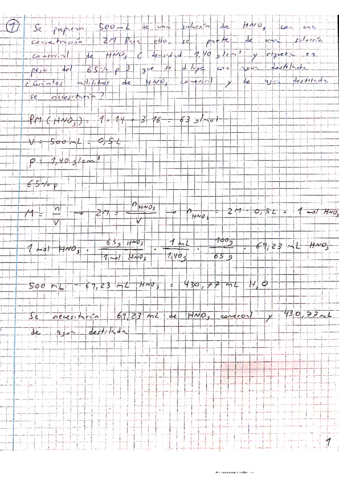 1 Se prepara 500mL de una solución de HNO3 con una
concentración 2M. Para ello, se parte de una solución
comercial de HNO3 (densidad 1,40 g/cm³ y riqueza en
peso del 65% p) que se diluye con agua destilada
¿Cuántos mililitros de HNO3 comercial y de agua destilada
se necesitaría?
PM (HNO3) = 1 + 14 + 3·16 = 63 g/mol
V = 500mL = 0,5L
ρ = 1,40 g/cm³
65%p
M = n/V → 2M = nHNO3/V → nHNO3 = 2M · 0,5L = 1 mol HNO3
1 mol HNO3 · 63g HNO3/1 mol HNO3 · 1 mL/1,40g · 100g/65 g = 69,23 mL HNO3
500 mL - 69,23 mL HNO3 = 430,77 mL H2O
Se necesitaría 69,23 mL de HNO3 comercial y 430,77mL
de agua destilada
1